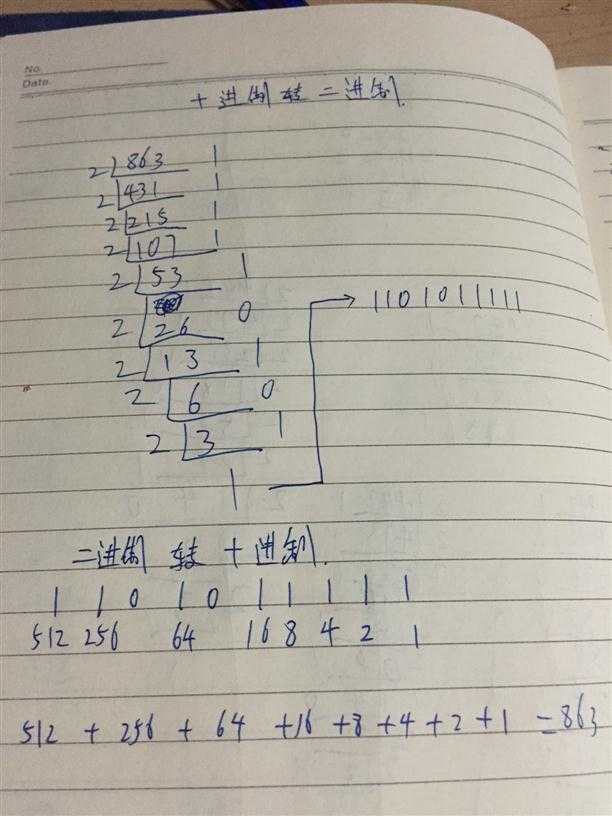 No.
Date.
十进制转二进制.
2 863 1
2 431 1
2 215 1
2 107 1
2 53 1
2 26 0
2 13 1
2 6 0
2 3 1
1
1101011111
二进制 转 十进制.
1 1 0 1 0 1 1 1 1 1
512 256 64 16 8 4 2 1
512 + 256 + 64 +16 +8 +4 +2 +1 =863